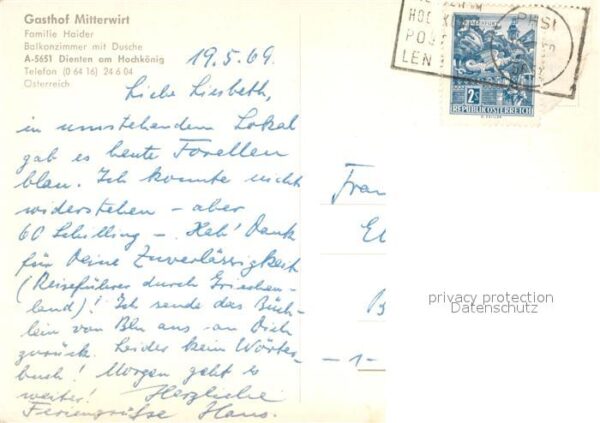 Gasthof Mitterwirt
Familie Haider
Balkonzimmer mit Dusche
A-5651 Dienten am Hochkönig
Telefon (0 64 16) 24 6 04
Österreich
19.5.69.
Liebe Liesbeth,
in umstehendem Lokal
gab es heute Forellen
blau. Ich konnte nicht
widerstehen – aber
60 Schilling –. Hab' Dank
für Deine Zuverlässigkeit
(Reiseführer durch Griechen-
land)! Ich sende das Büch-
lein von Bln aus an Dich
zurück. Leider kein Wörter-
buch! Morgen geht es
weiter! Herzliche
Feriengrüsse Hans.
HOC
POS
LEN
2 S
REPUBLIK ÖSTERREICH
Frau
El
B
-1-
privacy protection
Datenschutz